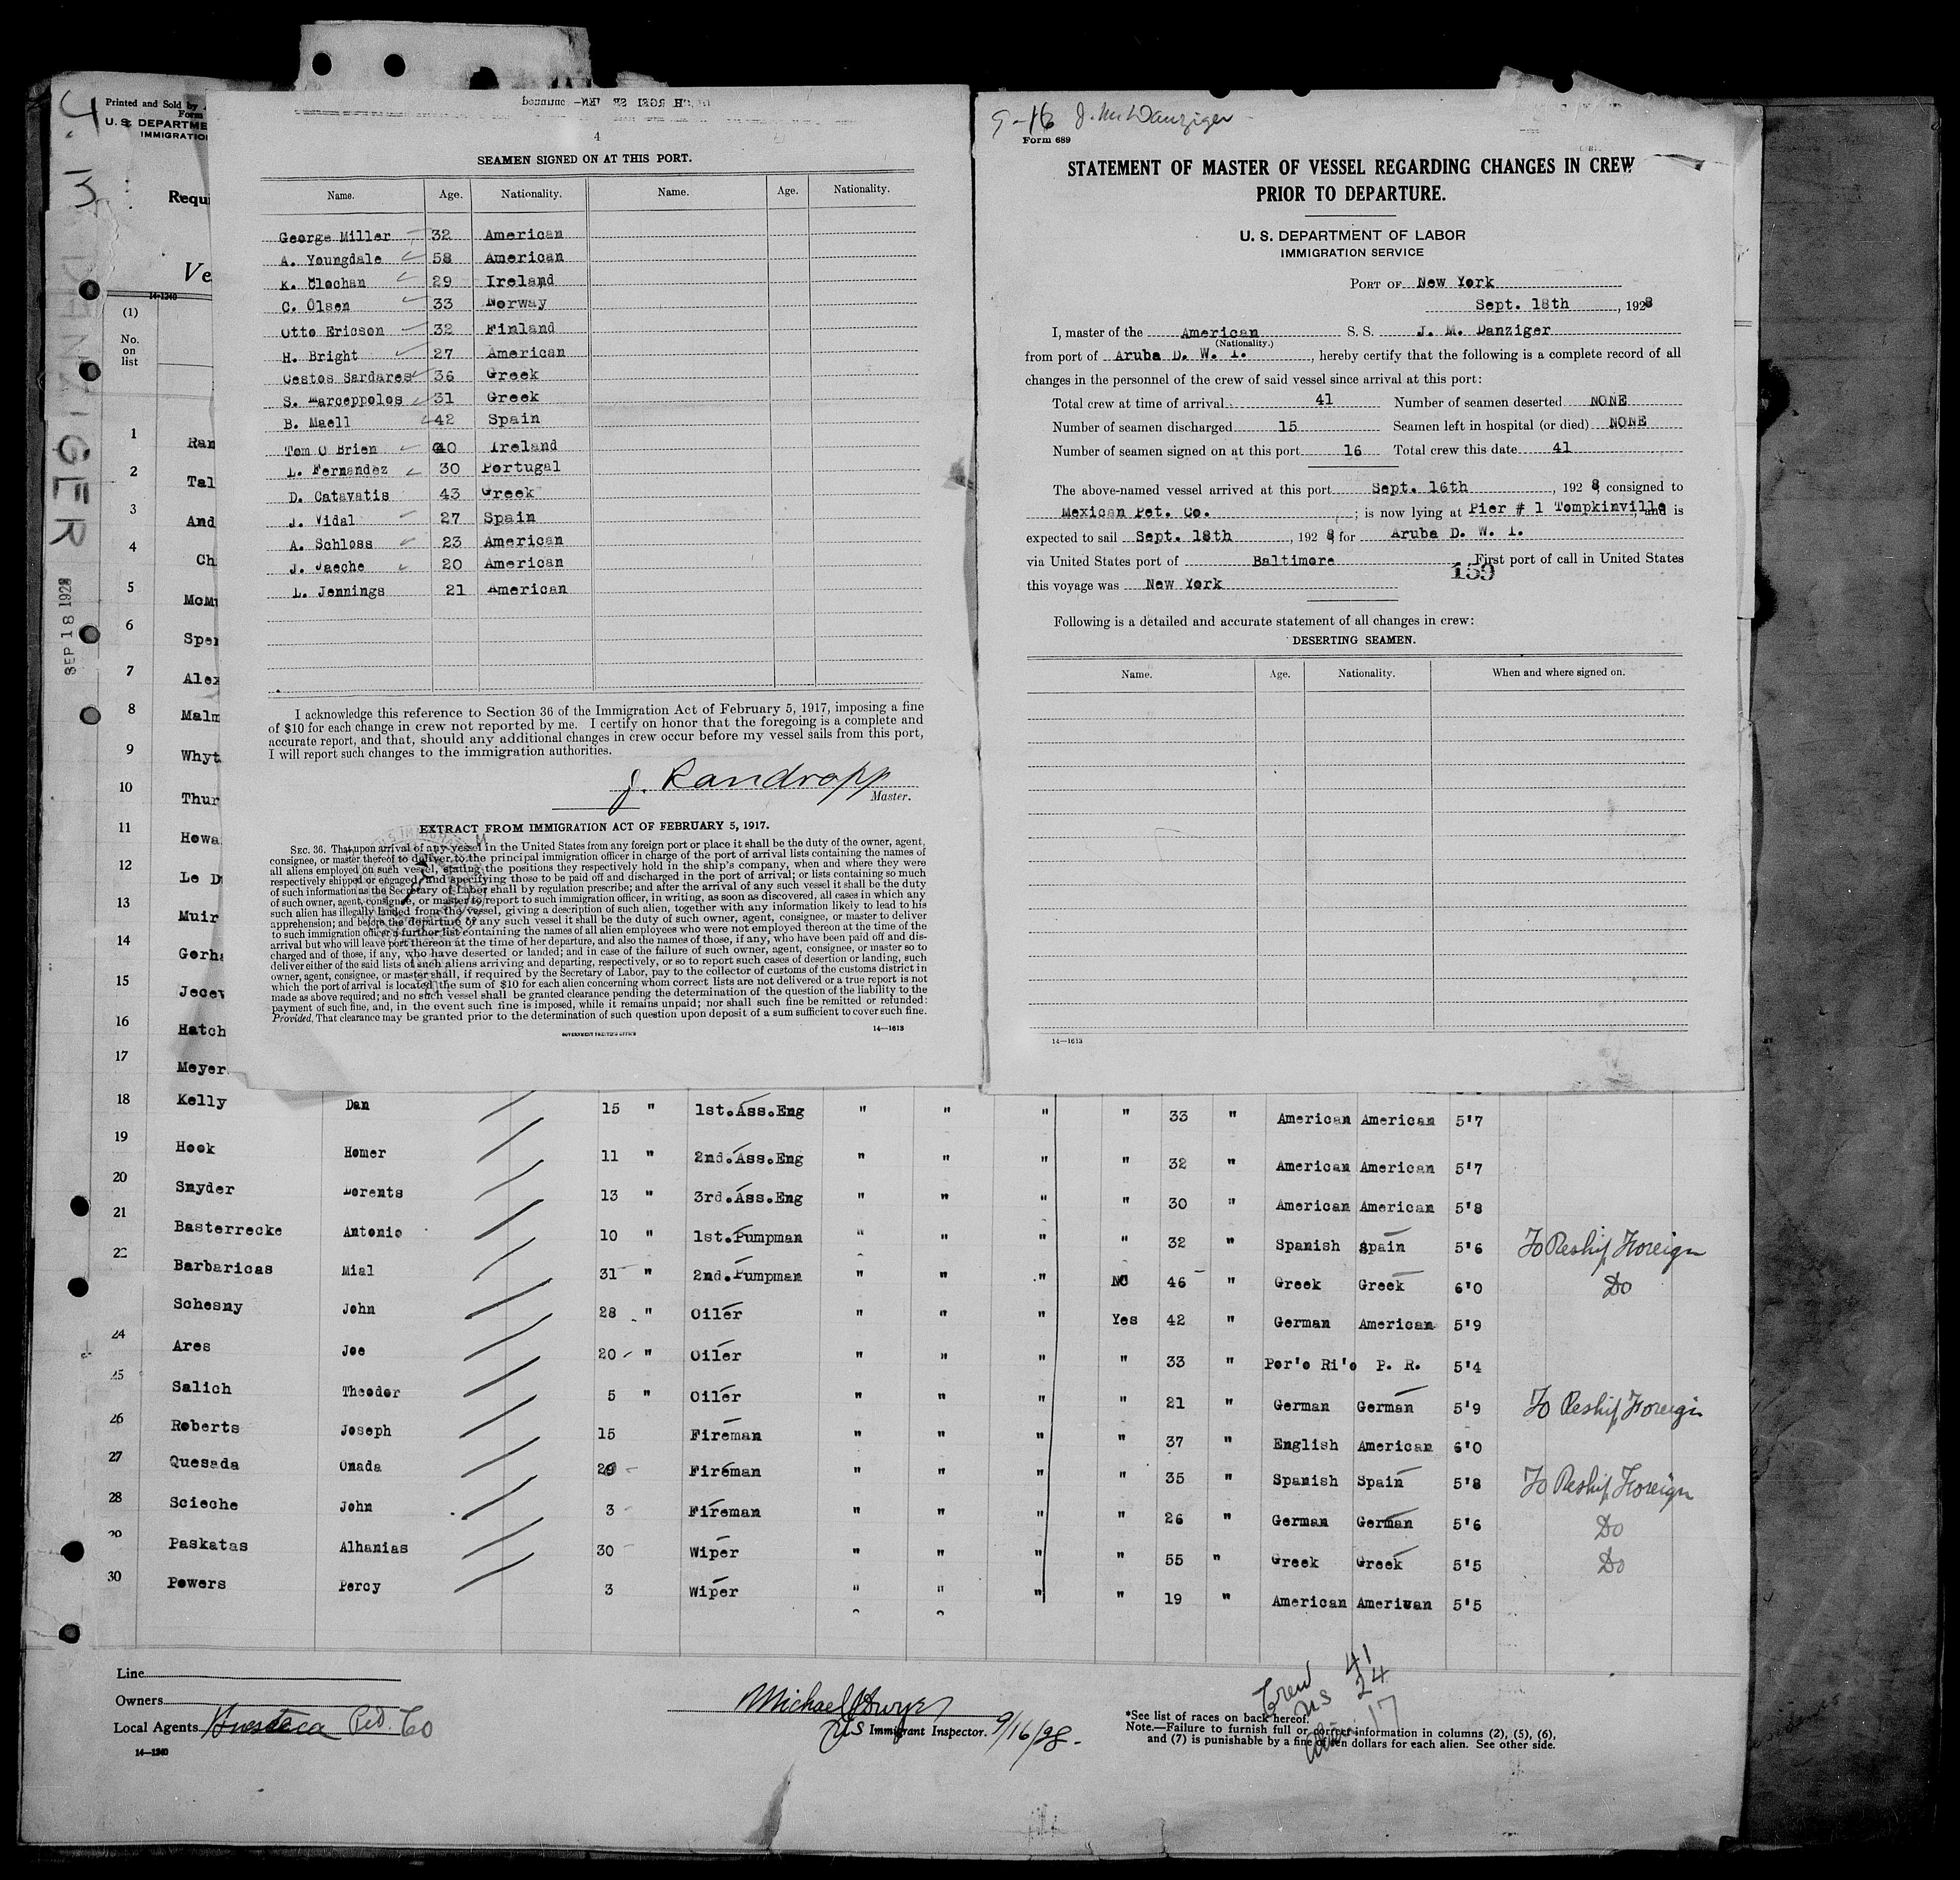 Printed and Sold by
Form
U. S. DEPARTME
IMMIGRATIO
Requi
Ve
14-1240
(1)
No.
on
list
DANZIGER
SEP 18 1928
1 Ran
2 Tal
3 And
4 Ch
5 McMu
6 Spen
7 Alex
8 Malm
9 Whyt
10 Thur
11 Howa
12 Le D
13 Muir
14 Gerha
15 Jecev
16 Hatch
17 Meyer
4
SEAMEN SIGNED ON AT THIS PORT.
Name. Age. Nationality. Name. Age. Nationality.
George Miller 32 American
A. Youngdale 58 American
K. Clochan 29 Ireland
C. Olsen 33 Norway
Otto Ericson 32 Finland
H. Bright 27 American
Cestos Sardares 36 Greek
S. Marceppolos 31 Greek
B. Maell 42 Spain
Tom O Brien 40 Ireland
L. Fernandez 30 Portugal
D. Catavatis 43 Greek
J. Vidal 27 Spain
A. Schloss 23 American
J. Jaeche 20 American
L. Jennings 21 American
I acknowledge this reference to Section 36 of the Immigration Act of February 5, 1917, imposing a fine
of $10 for each change in crew not reported by me. I certify on honor that the foregoing is a complete and
accurate report, and that, should any additional changes in crew occur before my vessel sails from this port,
I will report such changes to the immigration authorities.
J. Randropp
Master.
EXTRACT FROM IMMIGRATION ACT OF FEBRUARY 5, 1917.
SEC. 36. That upon arrival of any vessel in the United States from any foreign port or place it shall be the duty of the owner, agent,
consignee, or master thereof to deliver to the principal immigration officer in charge of the port of arrival lists containing the names of
all aliens employed on such vessel, stating the positions they respectively hold in the ship's company, when and where they were
respectively shipped or engaged, and specifying those to be paid off and discharged in the port of arrival; or lists containing so much
of such information as the Secretary of Labor shall by regulation prescribe; and after the arrival of any such vessel it shall be the duty
of such owner, agent, consignee, or master to report to such immigration officer, in writing, as soon as discovered, all cases in which any
such alien has illegally landed from the vessel, giving a description of such alien, together with any information likely to lead to his
apprehension; and before the departure of any such vessel it shall be the duty of such owner, agent, consignee, or master to deliver
to such immigration officer a further list containing the names of all alien employees who were not employed thereon at the time of the
arrival but who will leave port thereon at the time of her departure, and also the names of those, if any, who have been paid off and dis-
charged and of those, if any, who have deserted or landed; and in case of the failure of such owner, agent, consignee, or master so to
deliver either of the said lists of such aliens arriving and departing, respectively, or so to report such cases of desertion or landing, such
owner, agent, consignee, or master shall, if required by the Secretary of Labor, pay to the collector of customs of the customs district in
which the port of arrival is located the sum of $10 for each alien concerning whom correct lists are not delivered or a true report is not
made as above required; and no such vessel shall be granted clearance pending the determination of the question of the liability to the
payment of such fine, and, in the event such fine is imposed, while it remains unpaid; nor shall such fine be remitted or refunded:
Provided, That clearance may be granted prior to the determination of such question upon deposit of a sum sufficient to cover such fine.
GOVERNMENT PRINTING OFFICE 14—1613
9-16 J. M. Danziger
Form 689
STATEMENT OF MASTER OF VESSEL REGARDING CHANGES IN CREW
PRIOR TO DEPARTURE.
U. S. DEPARTMENT OF LABOR
IMMIGRATION SERVICE
PORT OF New York
Sept. 18th, 1928
I, master of the American S. S. J. M. Danziger
(Nationality.)
from port of Aruba D. W. I., hereby certify that the following is a complete record of all
changes in the personnel of the crew of said vessel since arrival at this port:
Total crew at time of arrival 41 Number of seamen deserted NONE
Number of seamen discharged 15 Seamen left in hospital (or died) NONE
Number of seamen signed on at this port 16 Total crew this date 41
The above-named vessel arrived at this port Sept. 16th, 1928, consigned to
Mexican Pet. Co.; is now lying at Pier # 1 Tompkinville, and is
expected to sail Sept. 18th, 1928, for Aruba D. W. I.
via United States port of Baltimore First port of call in United States
159
this voyage was New York
Following is a detailed and accurate statement of all changes in crew:
DESERTING SEAMEN.
Name. Age. Nationality. When and where signed on.
14—1613
18 Kelly Dan 15 " 1st.Ass.Eng " " " " 33 " American American 5'7
19 Hook Homer 11 " 2nd.Ass.Eng " " " " 32 " American American 5'7
20 Snyder Lorents 13 " 3rd.Ass.Eng " " " " 30 " American American 5'8
21 Basterrecke Antonio 10 " 1st.Pumpman " " " " 32 " Spanish Spain 5'6 To Reship Foreign
22 Barbaricas Mial 31 " 2nd.Pumpman " " " NO 46 " Greek Greek 6'0 Do
Schesny John 28 " Oiler " " " Yes 42 " German American 5'9
24 Ares Joe 20 " Oiler " " " " 33 " Por'o Ri'o P. R. 5'4
25 Salich Theodor 5 " Oiler " " " " 21 " German German 5'9 To Reship Foreign
26 Roberts Joseph 15 Fireman " " " " 37 " English American 6'0
27 Quesada Onada 29 Fireman " " " " 35 " Spanish Spain 5'8 To Reship Foreign
28 Scieche John 3 Fireman " " " " 26 " German German 5'6 Do
29 Paskatas Alhanias 30 Wiper " " " " 55 " Greek Greek 5'5 Do
30 Powers Percy 3 Wiper " " " " 19 " American American 5'5
Line
Owners
Local Agents Huasteca Pet. Co
14—1240
Michael Dwyer
US Immigrant Inspector. 9/16/28.
Crew 41
US 24
Alien 17
*See list of races on back hereof.
Note.—Failure to furnish full or correct information in columns (2), (5), (6),
and (7) is punishable by a fine of ten dollars for each alien. See other side.